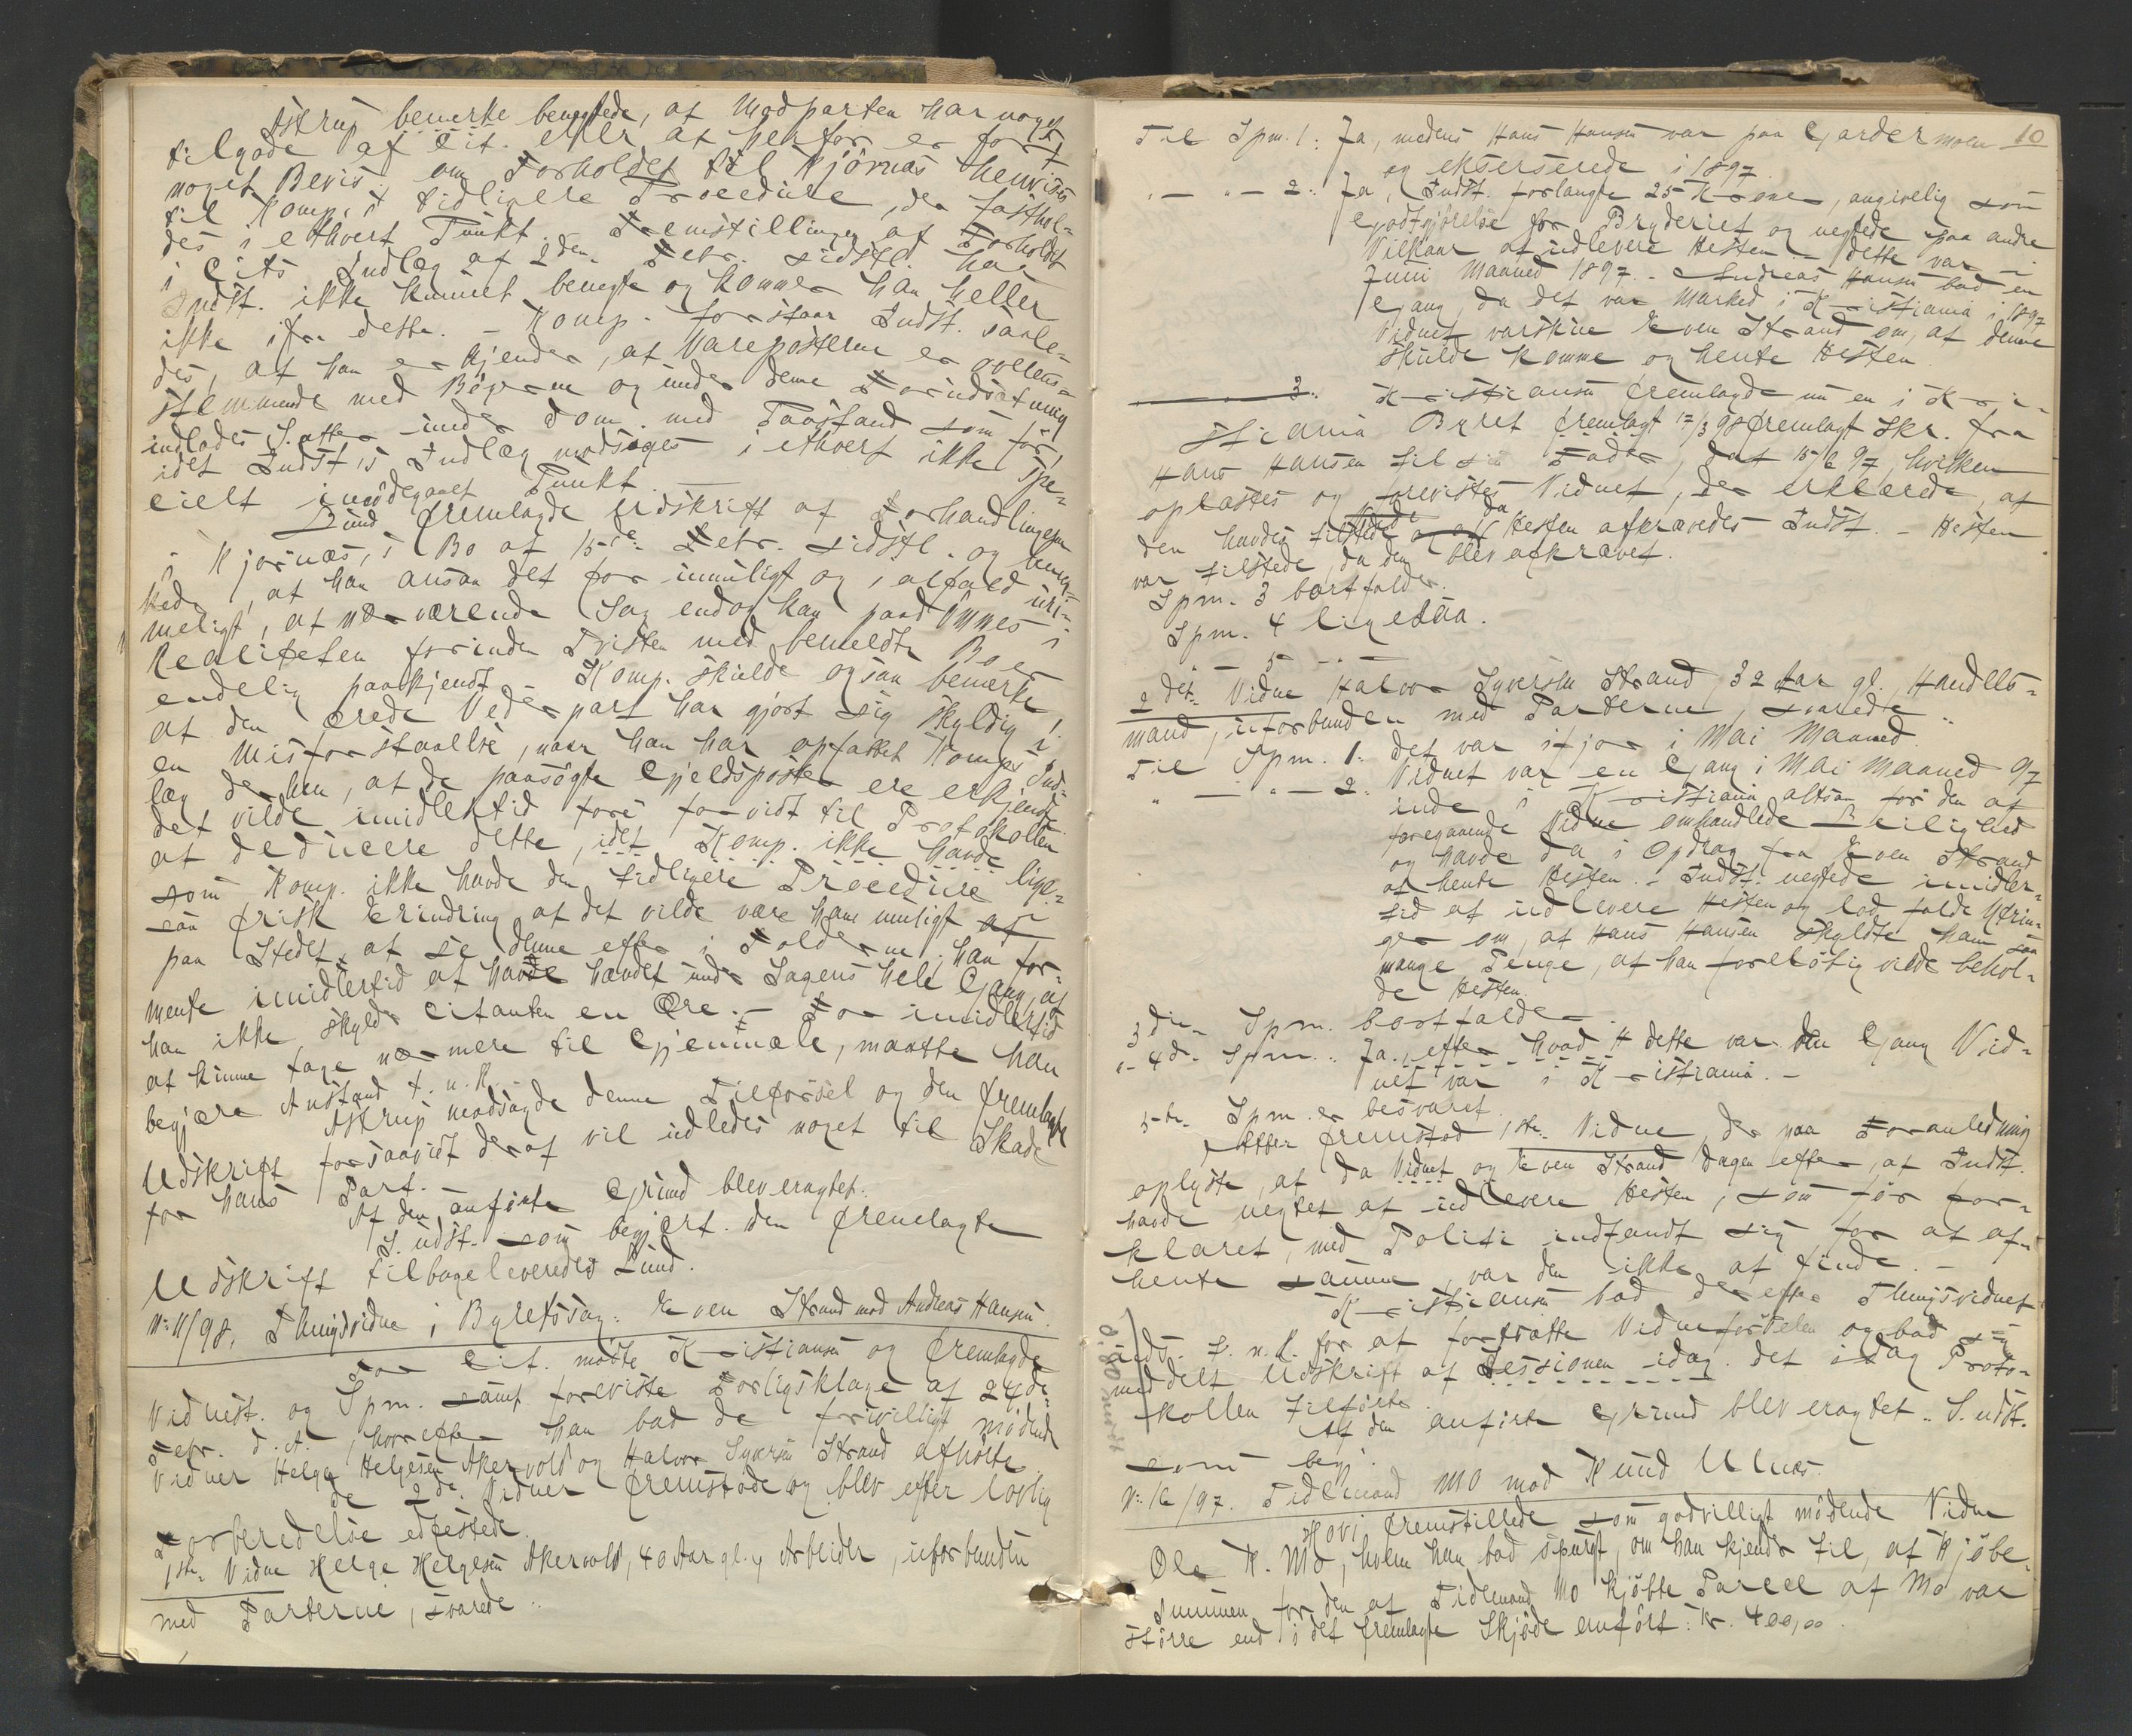 Astrup bemerke benegtede, at Modparten har noget
tilgode af Cit. eller at herfor er ført
noget Bevis; om Forholdet til Kjörnæs henvises
til Komp.s tidligere Procedure, der fasthol-
des i ethvert Punkt. Fremstillingen af Forholdet
i Cits Indlæg af 2den Febr. sidstl. har
Indst. ikke kunnet benegte og kommer han heller
ikke ifra dette. – Komp. forstaar Indst. saale-
des, at han erkjender, at Vareposterne er overens-
stemmende med Bögerne og under denne Forudsætning
indlades S. atter under Dom med Paastand som før,
idet Indst.s Indlæg modsiges i ethvert ikke spe-
cielt imödegaaet Punkt. –
Lund fremlagde Udskrift af Forhandlingerne
i Kjörnæs, i Bo af 15de Febr. sidstl. og bemær-
kede, at han ansaa det for umuligt og ialfald uri-
meligt, at nærværende Sag endog kan paadömmes i
Realiteten forinden Tvisten med bemeldte Bo er
endelig paakjendt. Komp. skulde ogsaa bemerke,
at den ærede Vederpart har gjort sig skyldig i
en Misforstaaelse, naar han har opfattet Komps Ind-
læg derhen, at de paasögte Gjeldsposter ere erkjendte.
det vilde imidlertid före forvidt til Protokollen
at deducere dette, idet Komp. ikke havde lige-
som Komp. ikke havde den tidligere Procedure i
saa frisk Erindring at det vilde være ham muligt at
paa Stedet at se denne efter i Foldene; han for-
mente imidlertid at have hævdet under Sagens hele Gang, at
han ikke skylder Citanten en Øre. – For imidlertid
at kunne tage nærmere til Gjenmæle, maatte han
begjære Anstand t. n. R. –
Astrup modsagde denne Tilförsel og den fremlagte
Udskrift forsaavidt deraf vil udledes noget til Skade
for hans Part. –
Af den anførte Grund blev eragtet:
S. udst. som begjært. den fremlagte
Udskrift tilbageleveredes Lund.
No 11/98. Thingsvidne i Byretssag: Even Strand mod Andreas Hansen.
For Cit. mödte Kristiansen og fremlagde
Vidnest. og Spm. samt foreviste Forligsklage af 24de
Febr. d. A., hvorefter han bad de frivilligt mödende
Vidner Helge Helgesen Akervold og Halvor Syversen Strand afhörte.
de 2de Vidner fremstode og blev efter lovlig
Forberedelse edfestede.
1ste Vidne Helge Helgesen Akervold, 40 Aar gl., Arbeider, uforbunden
med Parterne, svarede:
10
Til Spm. 1: Ja, medens Hans Hansen var paa Gardermoen
og ekserserede i 1897.
" – " – 2: Ja, Indst. forlangte 25 Kroner, angivelig som
Godtgjörelse for Bryderiet og negtede paa andre
Vilkaar at udlevere Hesten – dette var i
Juni Maaned 1897. – Andreas Hansen bad en
Gang, da det var Marked i Kristiania i 1897
Vidnet varskue Even Strand om, at denne
skulde komme og hente Hesten.
3. Kristiansen fremlagde nu en i Kri-
stiania Byret fremlagt 17/3 98 fremlagt Skr. fra
Hans Hansen til sin Fader, dat 15/6 97, hvilken
oplæstes og forevistes Vidnet, der erklærede, at
den havdes tilstede da Hesten afkrævedes Indst. – Hesten
var tilstede, da den blev afkrævet.
Spm. 3 bortfalder.
Spm. 4 ligesaa.
" – 5 – " –
2det Vidne Halvor Syversen Strand 32 Aar gl., Handels-
mand, uforbunden med Parterne, svarede:
Til Spm. 1: det var ifjor i Mai Maaned.
" – " – 2: Vidnet var en Gang i Mai Maaned 97
inde i Kristiania altsaa för den af
foregaaende Vidne omhandlede Leilighed
og havde da i Opdrag fra Even Strand
at hente Hesten. – Indst. negtede imidler-
tid at udlevere Hesten og lod falde Ytrin-
ger om, at Hans Hansen skyldte ham saa
mange Penge, at han forelöbig vilde behol-
de Hesten.
3die Spm. bortfalder.
" – 4de Spm.: Ja, efter hvad H dette var den Gang Vid-
net var i Kristiania. –
5te Spm. er besvaret.
Atter fremstod 1ste Vidne, der paa Foranledning
oplyste, at da Vidnet og Even Strand dagen efter, at Indst.
havde negtet at udlevere Hesten, som för for-
klaret, med Politi indfandt sig for at af-
hente samme, var den ikke at finde. –
Kristiansen bad derefter Thingsvidnet
uds. t. n. R. for at fortsætte Vidneförselen og bad sig
meddelt Udskrift af Sessionen idag. det idag Proto-
kollen tilförte.
Af den anførte Grund blev eragtet: S. udst.
som begj.
No 16/97. Tidemand Mo mod Knud Ulnæs.
Hovi fremstillede som godvilligt mödende Vidne
Ole K. Mo, hvem han bad spurgt, om han kjender til, at Kjöbe-
summen for den af Tidemand Mo kjöbte Parcel af Mo var
större end i det fremlagte Skjöde anført: Kr. 400,00.